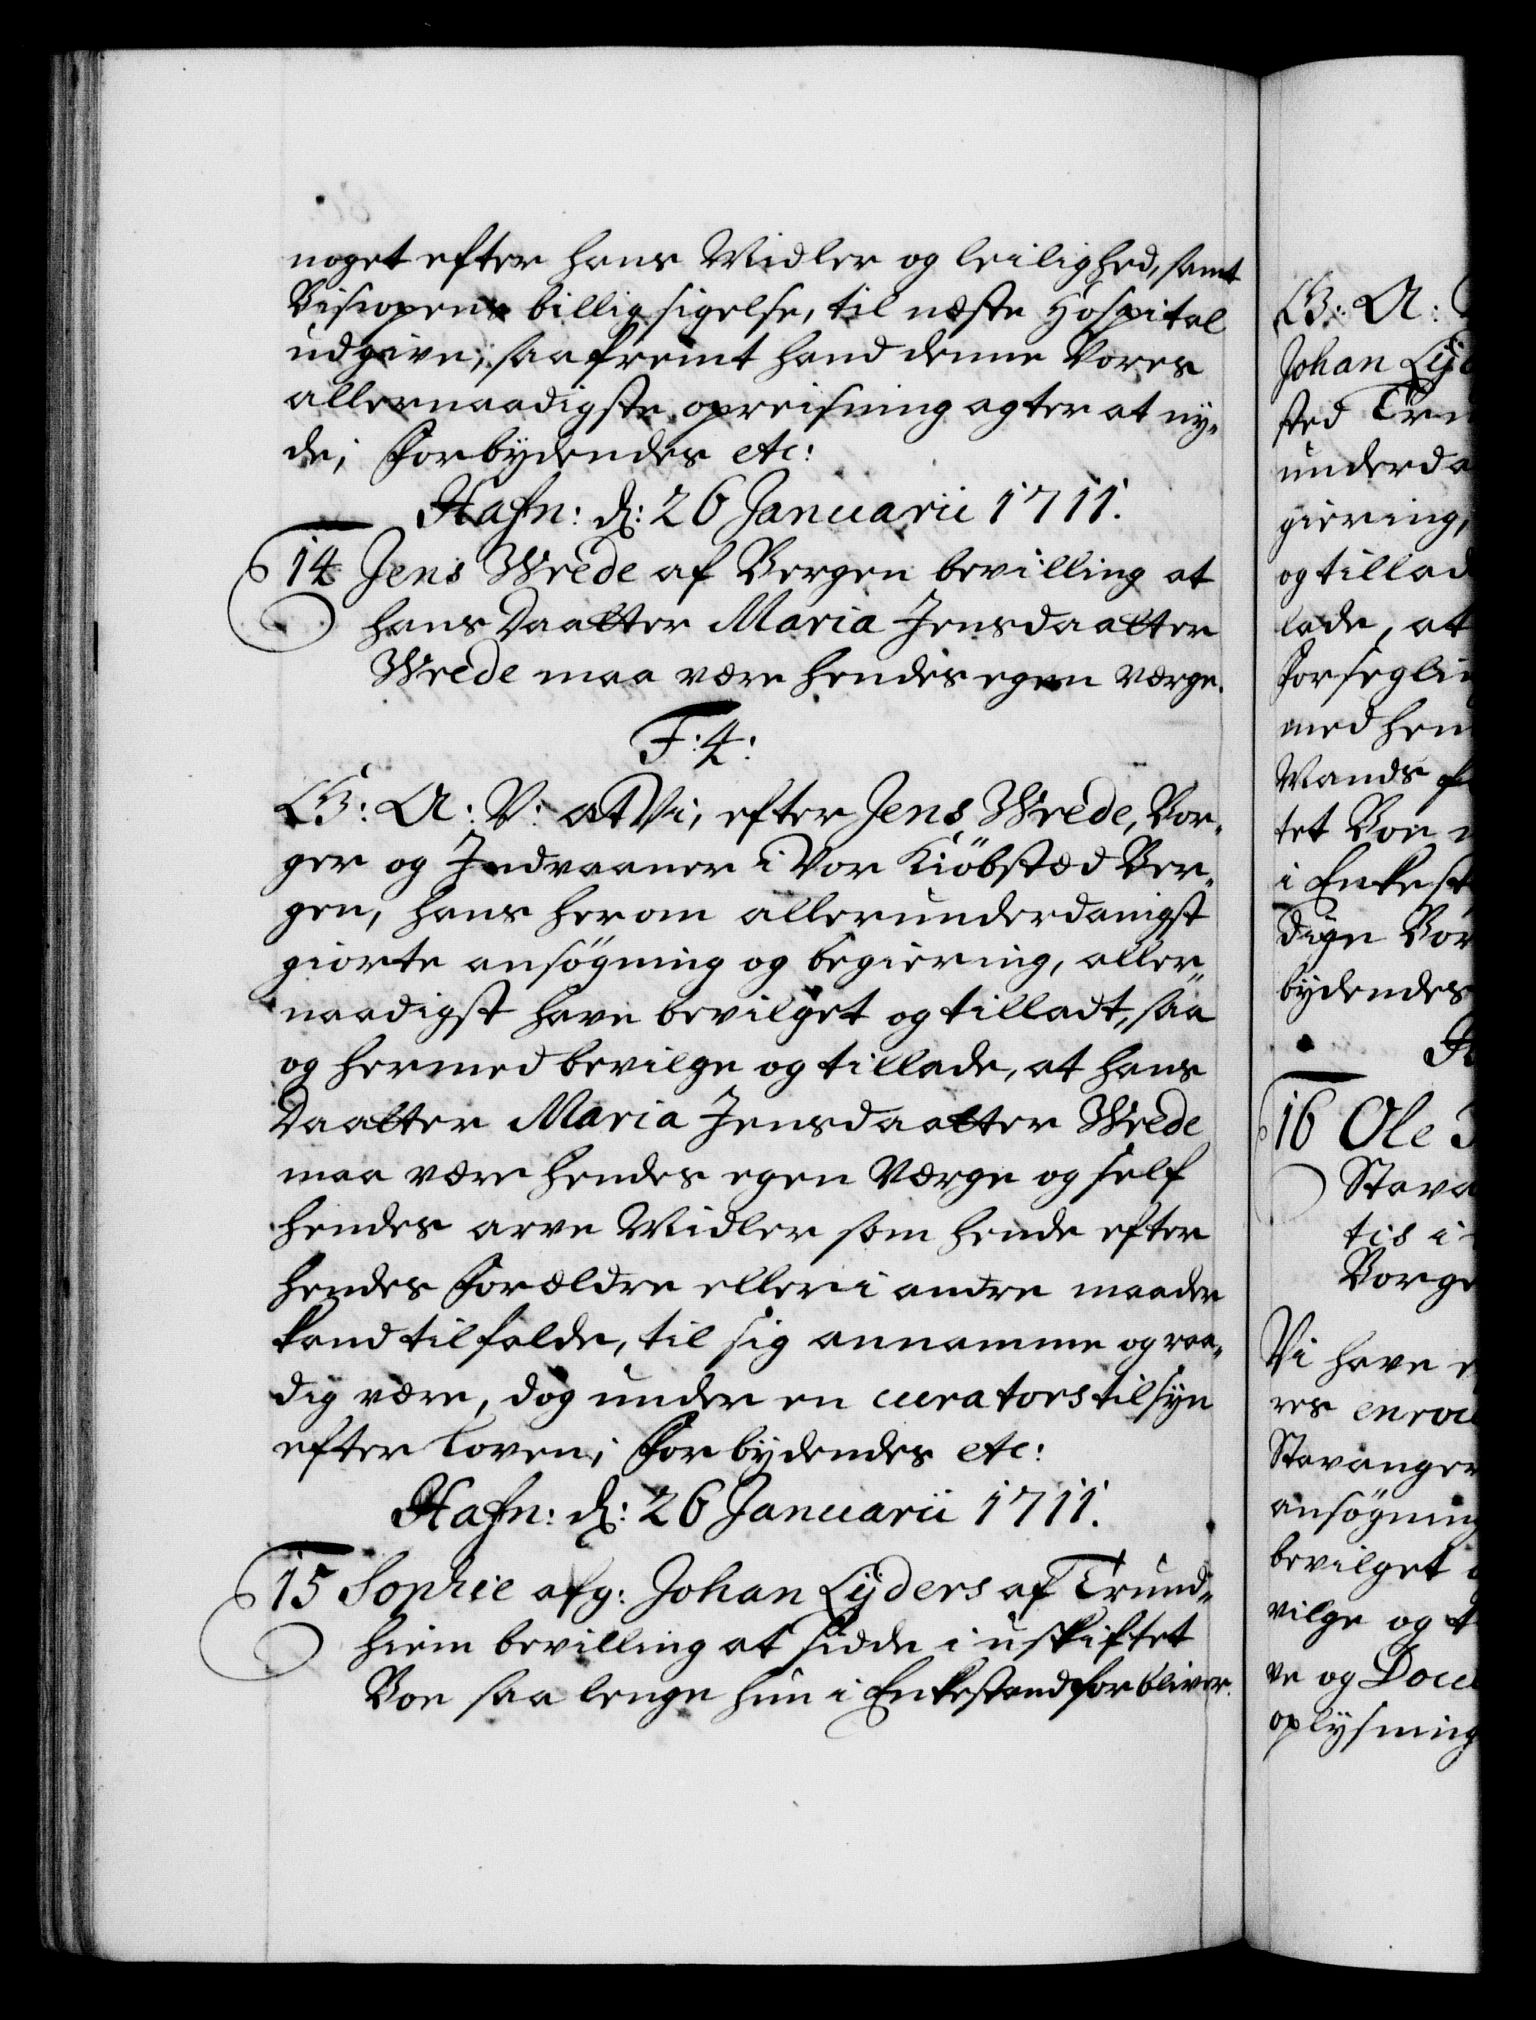 noget efter hans Midler og leilighed, samt
Bispens billig sigelse, til næste Hospital
udgive; saafremt hand denne Vores
allernaadigste opreisning agter at ny-
de; Forbydendes etc:
Hafn: d: 26 Januarii 1711.
14 Jens Wrede af Bergen bevilling at
hans Daatter Maria Jensdaatter
Wrede maa være hendes egen værge.
F: 4:
G: A: V: at Vi, efter Jens Wrede, Bor-
ger og Indvaaner i Vor Kiöbstæd Ber-
gen, hans herom allerunderdanigst
giorte ansögning og begiering, aller-
naadigst have bevilget og tilladt, saa
og hermed bevilge og tillade, at hans
Daatter Maria Jensdaatter Wrede
maa være hendes egen Værge og self
hendes arve Midler som hende efter
hendes Forældre eller i andre maader
kand tilfalde, til sig annamme og raa-
dig være, dog under en curators tilsyn
efter loven; Forbydendes etc:
Hafn: d: 26 Januarii 1711.
15 Sophie afg: Johan Lyders af Trund-
hiem bevilling at sidde i uskiftet
Boe saa lenge hun i Enkestand forbliver.
G: A:
Johan Lyd
sted Trn
underda
giering,
og tillad
lade, at
Forseglin
med hen
Mands
tet Boe
i Enkest
dige Bor
bydendes
16 Ole
Stava
tis i
Borge
Vi have e
res enrou
Stavanger
ansögning
bevilget
vilge og t
ve og Docu
oplysning